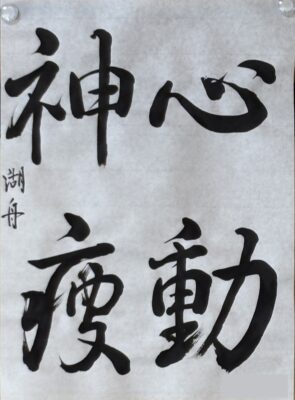 心動
神疲
湖舟